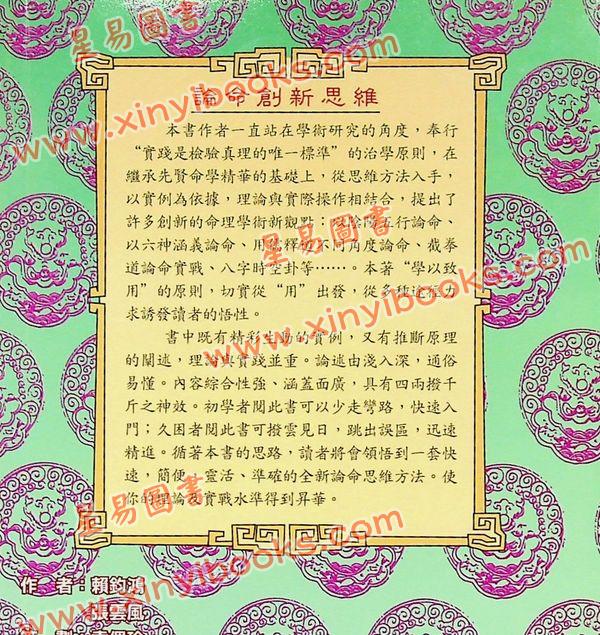 星易圖書
www.xinyibooks.com
論命創新思維
本書作者一直站在學術研究的角度，奉行
“實踐是檢驗真理的唯一標準”的治學原則，在
繼承先賢命學精華的基礎上，從思維方法入手，
以實例為依據，理論與實際操作相結合，提出了
許多創新的命理學術新觀點：以陰陽五行論命、
以六神涵義論命、用 釋 不同角度論命、截拳
道論命實戰、八字時空卦等……。本著“學以致
用”的原則，切實從“用”出發，從多種途徑力
求誘發讀者的悟性。
星易圖書
www.xinyibooks.com
書中既有精彩生動的實例，又有推斷原理
的闡述，理論與實踐並重。論述由淺入深，通俗
易懂。內容綜合性強、涵蓋面廣，具有四兩撥千
斤之神效。初學者閱此書可以少走彎路，快速入
門；久困者閱此書可撥雲見日，跳出誤區，迅速
精進。循著本書的思路，讀者將會領悟到一套快
速，簡便，靈活、準確的全新論命思維方法。使
你的理論及實戰水準得到昇華。
星易圖書
www.xinyibooks.com
作 者：賴鈞鴻
雲風